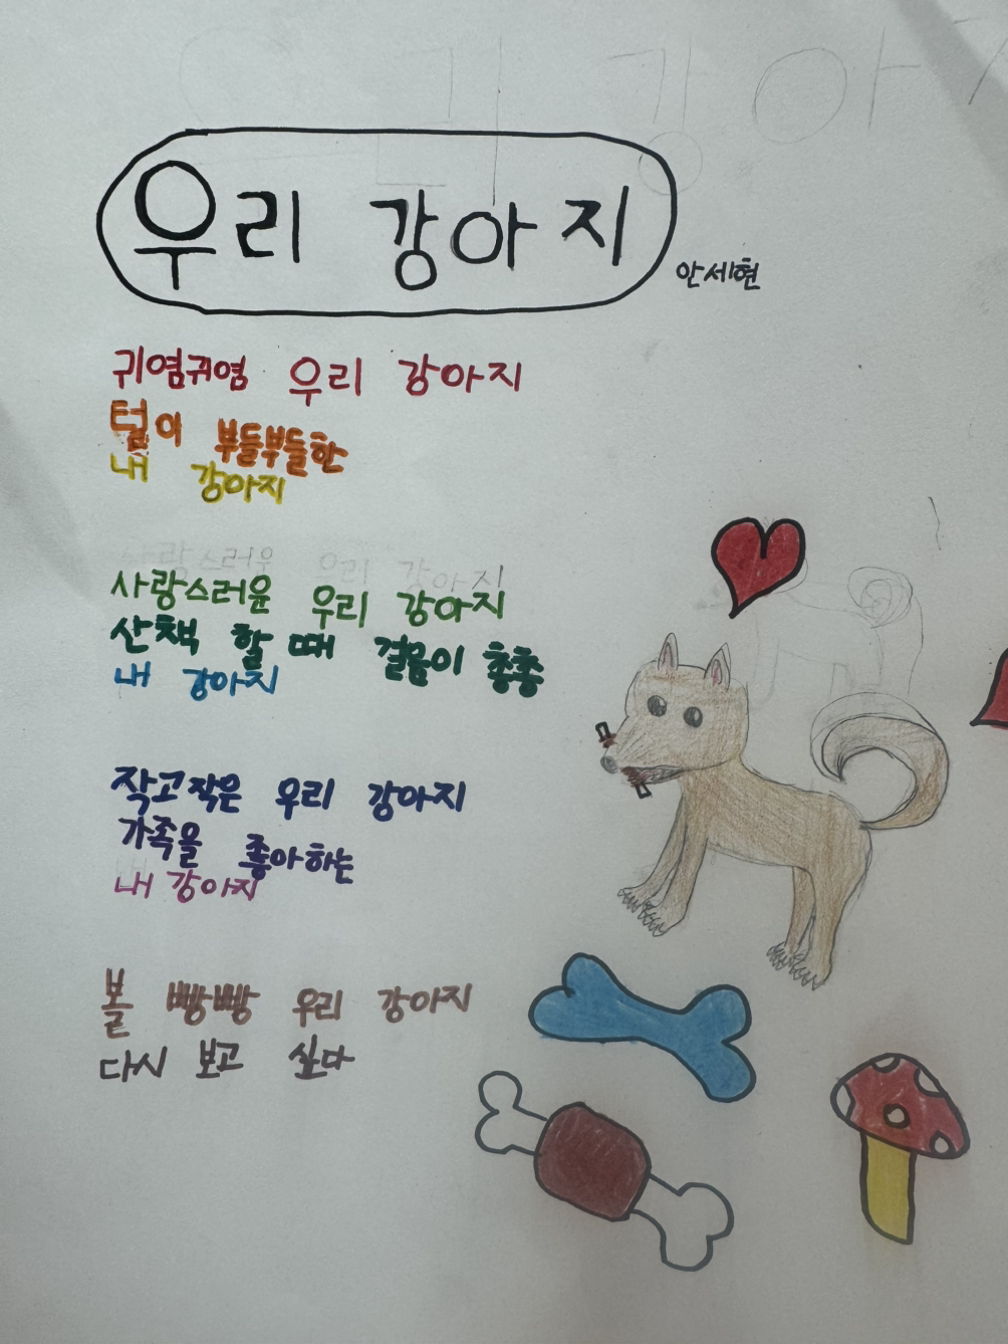 우리 강아지
안세현
귀염귀염 우리 강아지
털이 부들부들한
내 강아지
사랑스러운 우리 강아지
산책 할 때 걸음이 총총
내 강아지
작고작은 우리 강아지
가족을 좋아하는
내 강아지
볼 빵빵 우리 강아지
다시 보고 싶다